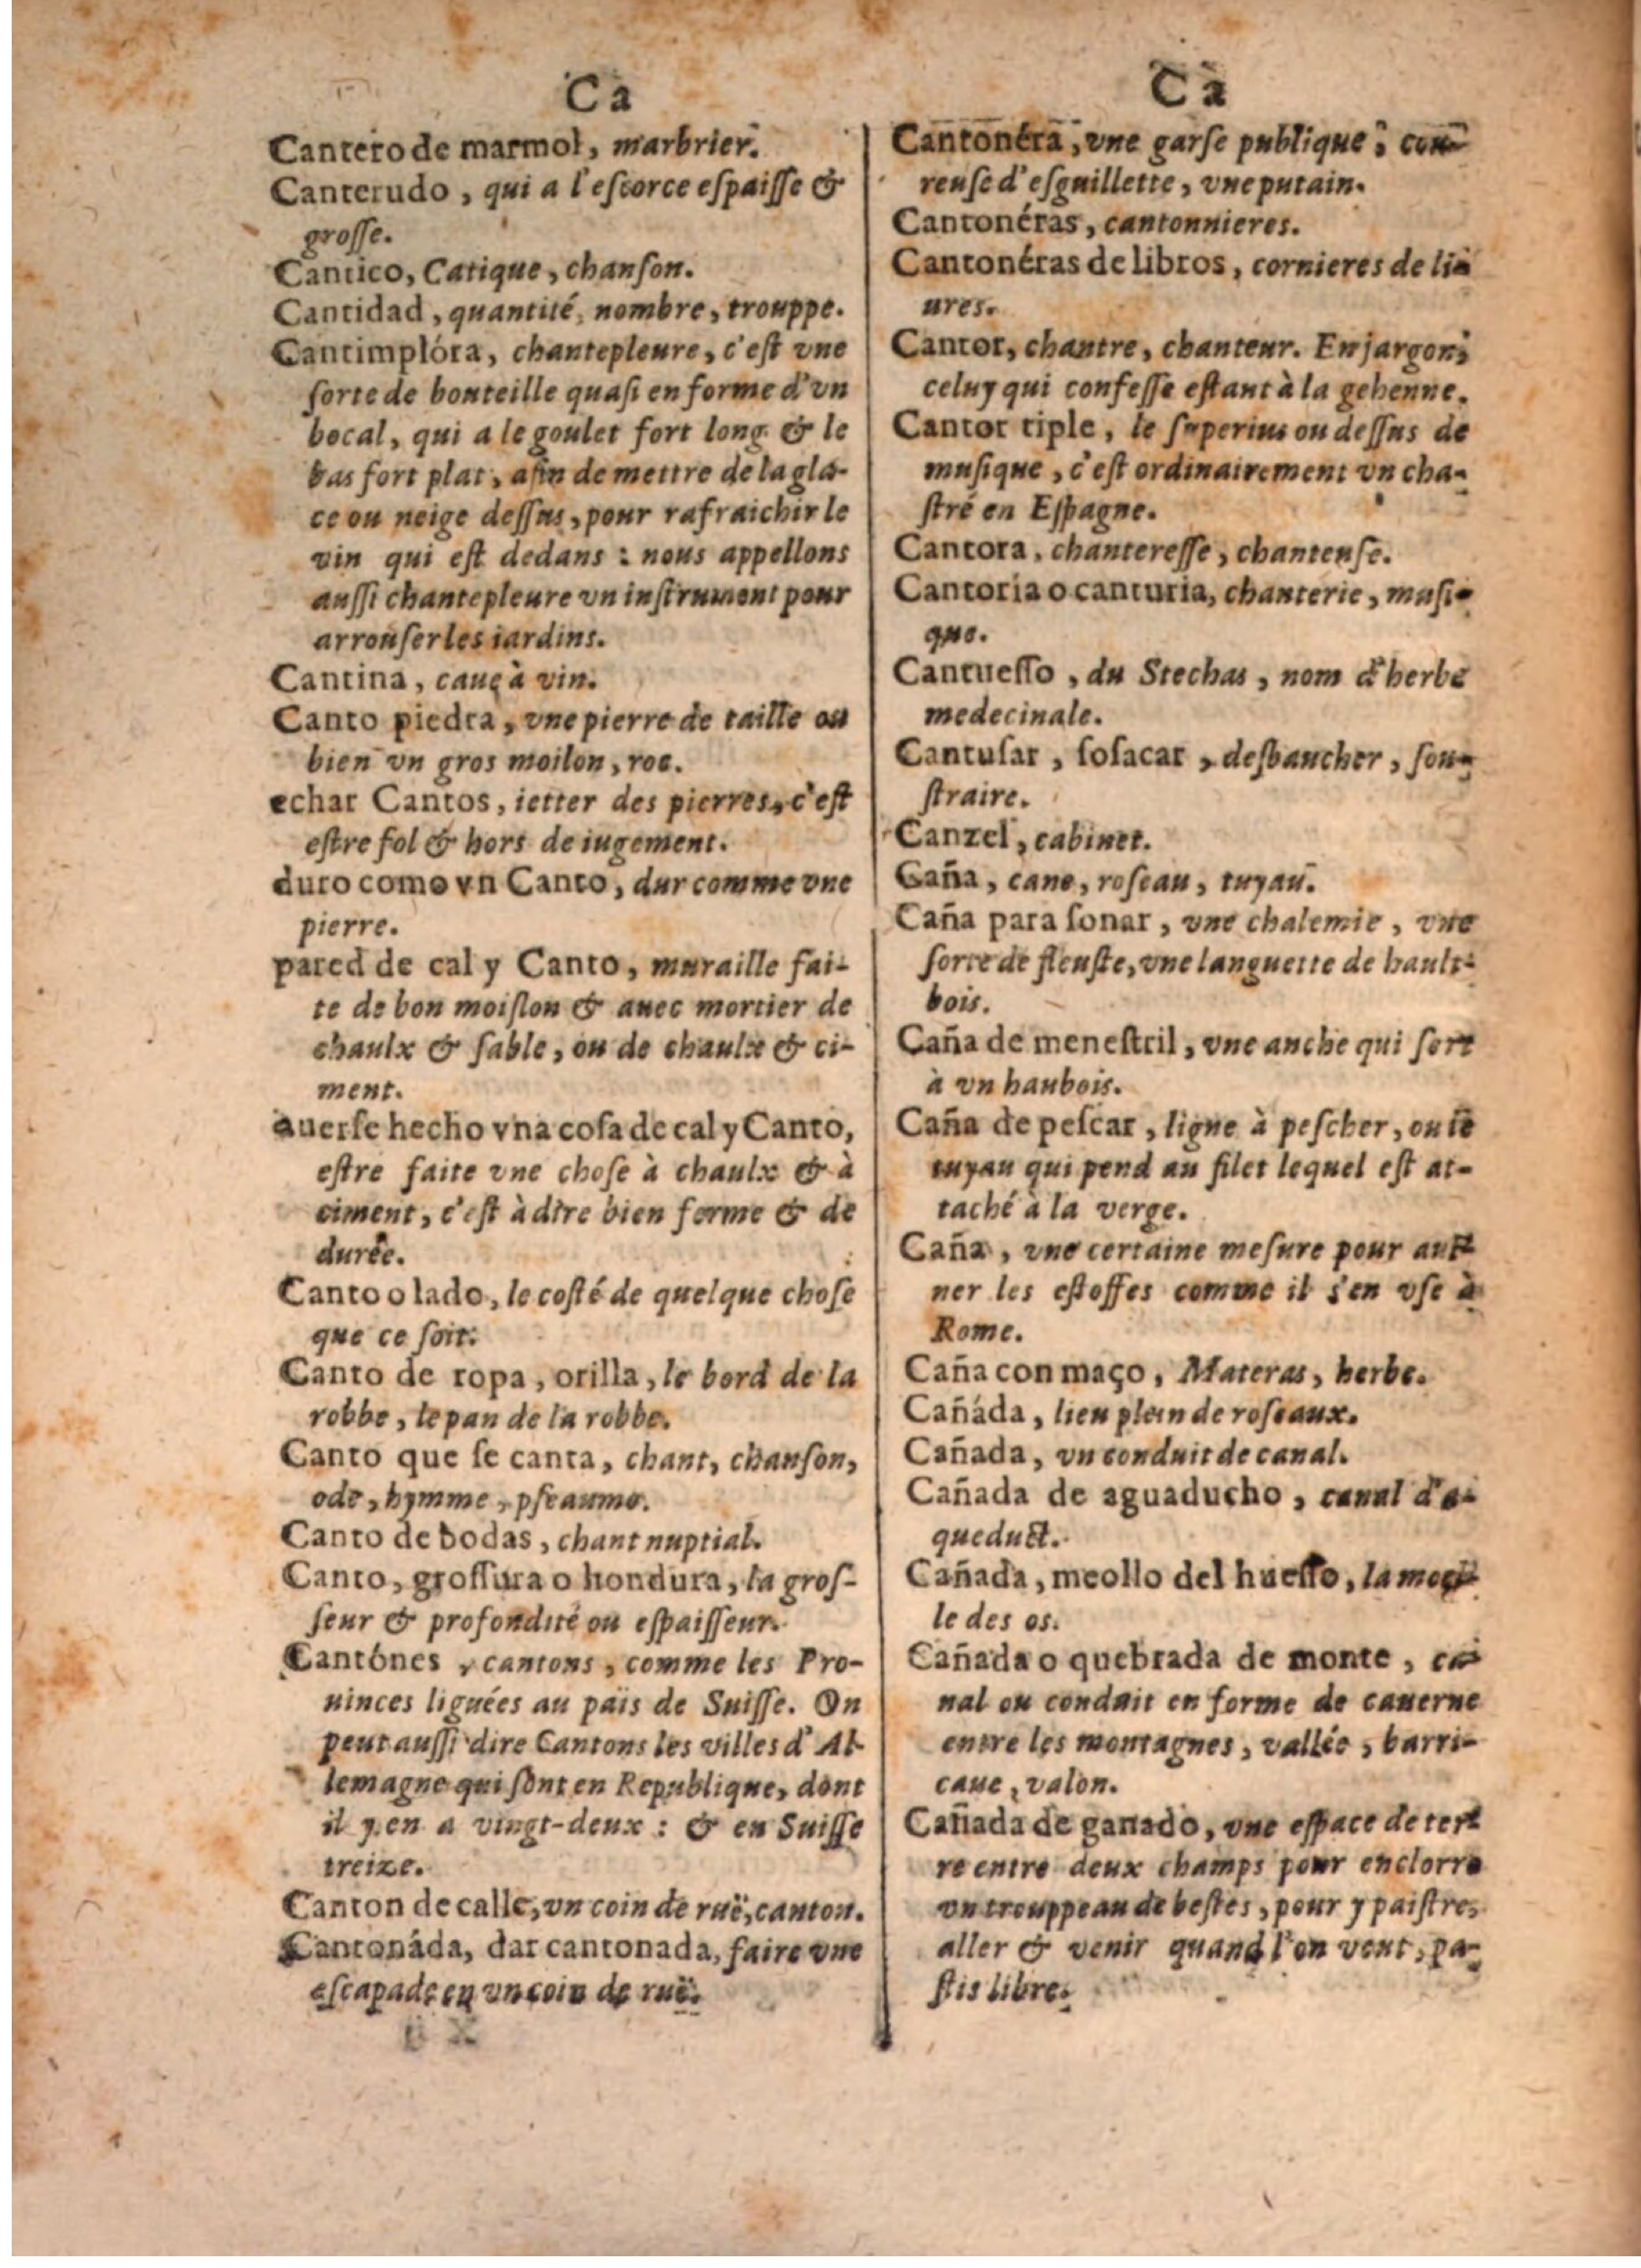 Ca
Cantero de marmol, marbrier.
Canterudo, qui a l'escorce espaisse &
grosse.
Cantico, Catique, chanson.
Cantidad, quantité, nombre, trouppe.
Cantimplóra, chantepleure, c'est vne
sorte de bouteille quasi en forme d'vn
bocal, qui a le goulet fort long & le
bas fort plat, afin de mettre de la gla-
ce ou neige dessus, pour rafraichir le
vin qui est dedans : nous appellons
aussi chantepleure vn instrument pour
arrouser les iardins.
Cantina, caue à vin.
Canto piedra, vne pierre de taille ou
bien vn gros moilon, roc.
echar Cantos, ietter des pierres, c'est
estre fol & hors de iugement.
duro como vn Canto, dur comme vne
pierre.
pared de cal y Canto, muraille fai-
te de bon moislon & auec mortier de
chaulx & sable, ou de chaulx & ci-
ment.
auerse hecho vna cosa de cal y Canto,
estre faite vne chose à chaulx & à
ciment, c'est à dire bien ferme & de
durée.
Canto o lado, le costé de quelque chose
que ce soit.
Canto de ropa, orilla, le bord de la
robbe, le pan de la robbe.
Canto que se canta, chant, chanson,
ode, hymme, pseaume.
Canto de bodas, chant nuptial.
Canto, grossura o hondura, la gros-
seur & profondité ou espaisseur.
Cantónes, cantons, comme les Pro-
uinces liguées au païs de Suisse. On
peut aussi dire Cantons les villes d'Al-
lemagne qui sont en Republique, dont
il y en a vingt-deux : & en Suisse
treize.
Canton de calle, vn coin de ruë, canton.
Cantonáda, dar cantonada, faire vne
escapade en vn coin de ruë.
Ca
Cantonéra, vne garse publique, cou-
reuse d'esguillette, vne putain.
Cantonéras, cantonnieres.
Cantonéras de libros, cornieres de li-
ures.
Cantor, chantre, chanteur. En jargon,
celuy qui confesse estant à la gehenne.
Cantor tiple, le superius ou dessus de
musique, c'est ordinairement vn cha-
stré en Espagne.
Cantora, chanteresse, chanteuse.
Cantoria o canturia, chanterie, musi-
que.
Cantuesso, du Stechas, nom d'herbe
medecinale.
Cantusar, sosacar, desbaucher, sou-
straire.
Canzel, cabinet.
Caña, cane, roseau, tuyau.
Caña para sonar, vne chalemie, vne
sorte de fleuste, vne languette de hault-
bois.
Caña de menestril, vne anche qui sert
à vn haubois.
Caña de pescar, ligne à pescher, ou le
tuyau qui pend au filet lequel est at-
taché à la verge.
Caña, vne certaine mesure pour aul-
ner les estoffes comme il s'en vse à
Rome.
Caña con maço, Materas, herbe.
Cañáda, lieu plein de roseaux.
Cañada, vn conduit de canal.
Cañada de aguaducho, canal d'a-
queduct.
Cañada, meollo del huesso, la moel-
le des os.
Cañada o quebrada de monte, ca-
nal ou conduit en forme de cauerne
entre les montagnes, vallée, barri-
caue, valon.
Cañada de ganado, vne espace de ter-
re entre deux champs pour enclorre
vn trouppeau de bestes, pour y paistre,
aller & venir quand l'on veut, pa-
stis libre.